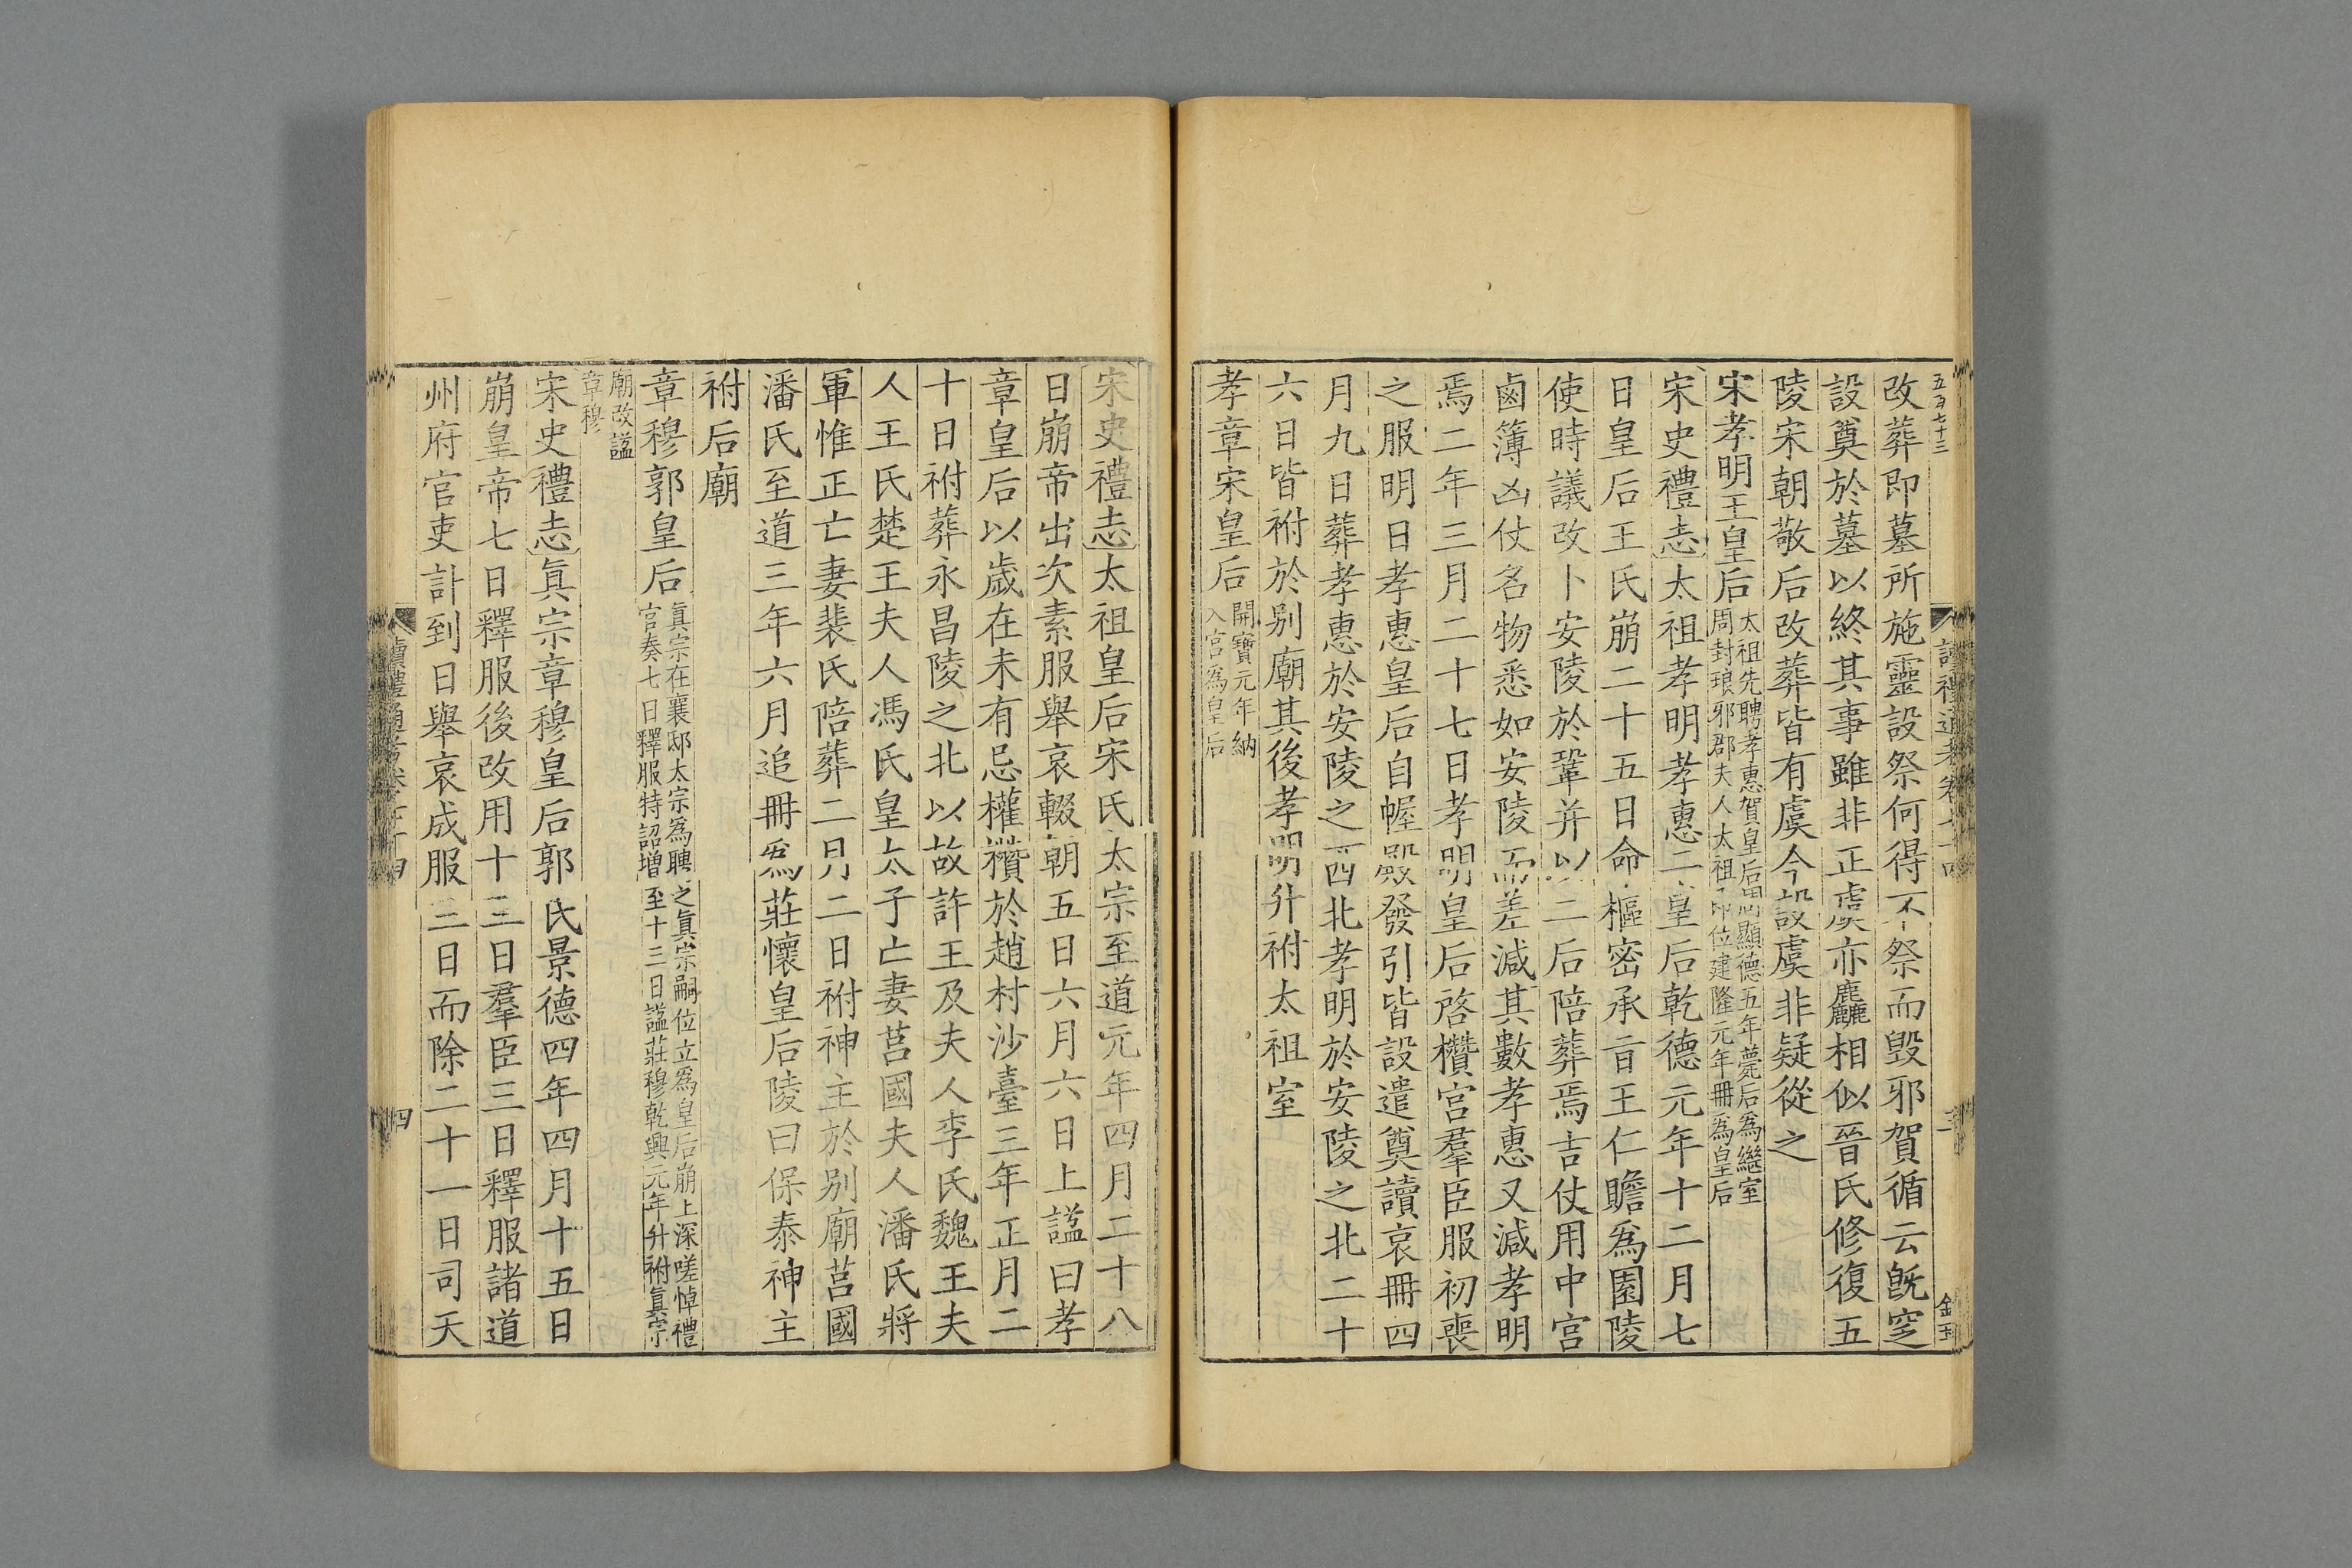 五百七十三
改葬即墓所施靈設祭何得不祭而毁邪賀循云旣窆
設奠於墓以終其事雖非正虞亦麤相似晉氏修復五
陵宋朝敬后改葬皆有虞今設虞非疑從之
宋孝明王皇后
太祖先聘孝惠賀皇后周顯德五年薨后爲繼室
周封琅邪郡夫人太祖即位建隆元年冊爲皇后
宋史禮志太祖孝明孝惠二皇后乾德元年十二月七
日皇后王氏崩二十五日命樞密承旨王仁贍爲園陵
使時議改卜安陵於鞏并以二后陪葬焉吉仗用中宮
鹵簿凶仗名物悉如安陵而差減其數孝惠又減孝明
焉二年三月二十七日孝明皇后啓欑宮羣臣服初喪
之服明日孝惠皇后自幄殿發引皆設遣奠讀哀冊四
月九日葬孝惠於安陵之西北孝明於安陵之北二十
六日皆祔於别廟其後孝明升祔太祖室
孝章宋皇后
開寶元年納
入宮爲皇后
宋史禮志太祖皇后宋氏太宗至道元年四月二十八
日崩帝出次素服舉哀輟朝五日六月六日上謚曰孝
章皇后以歲在未有忌權欑於趙村沙臺三年正月二
十日祔葬永昌陵之北以故許王及夫人李氏魏王夫
人王氏楚王夫人馮氏皇太子亡妻莒國夫人潘氏將
軍惟正亡妻裴氏陪葬二月二日祔神主於别廟莒國
潘氏至道三年六月追冊爲莊懷皇后陵曰保泰神主
祔后廟
章穆郭皇后
眞宗在襄邸太宗爲聘之眞宗嗣位立爲皇后崩上深嗟悼禮
官奏七日釋服特詔增至十三日謚莊穆乾興元年升祔眞宗
廟改謚
章穆
宋史禮志眞宗章穆皇后郭氏景德四年四月十五日
崩皇帝七日釋服後改用十三日羣臣三日釋服諸道
州府官吏訃到日舉哀成服三日而除二十一日司天
四